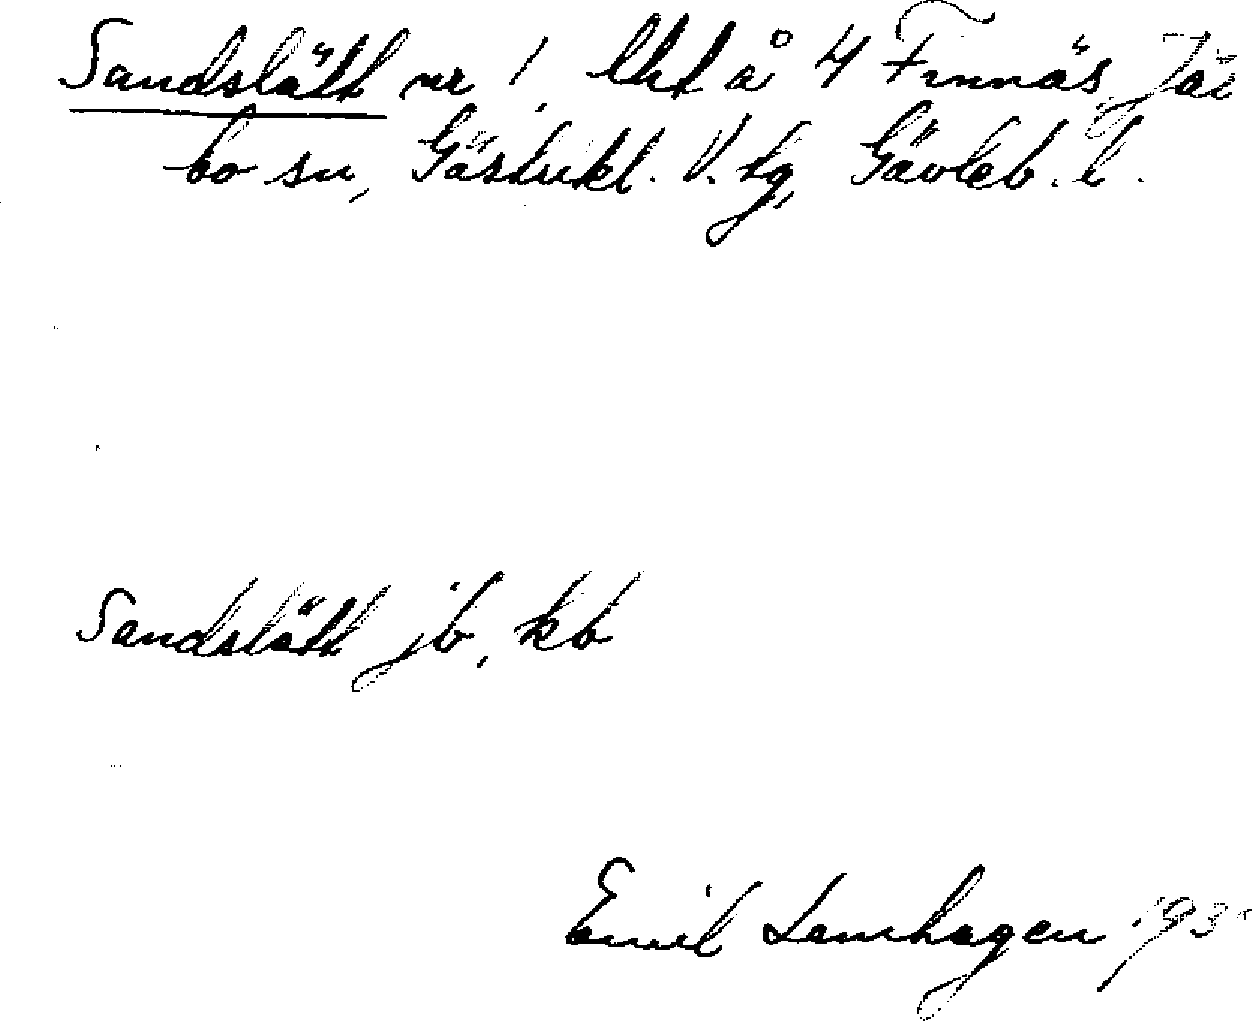 Sandslätt nr 1, lht å 4 Finnäs, Jär
bo sn, Gästrikl. V. tg, Gävleb. l.
Sandslätt jb, kb
Emil Lamhagen 193